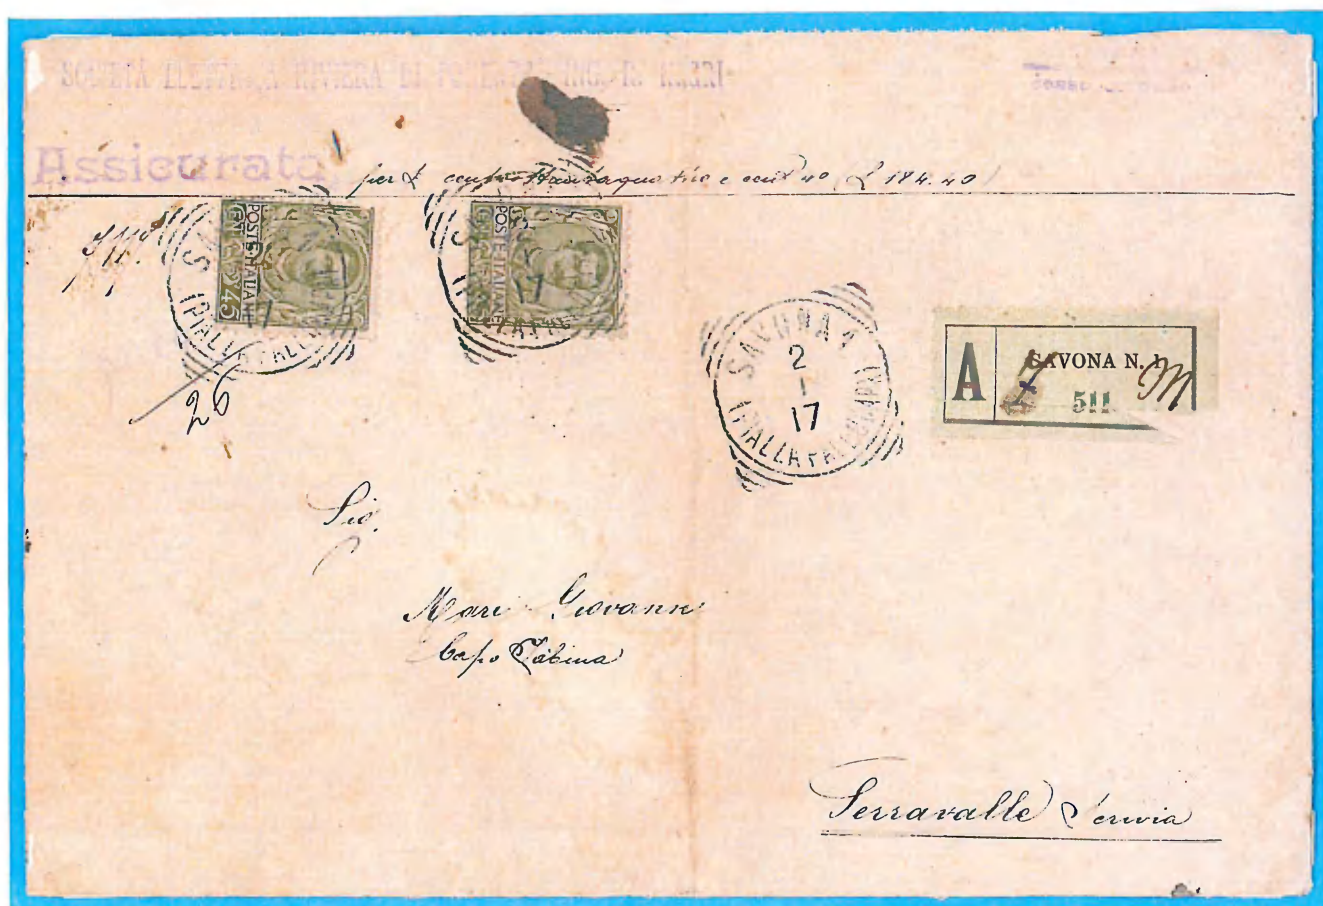 SOCIETÀ ELETTRICA RIVIERA DI PONENTE ING. R. NEGRI
Assicurata
per £ cento ottantaquattro e cent 40 (£ 184.40)
POSTE ITALIANE
45
POSTE ITALIANE
SAVONA
17
17
26
SAVONA 1
2
1
17
(PIAZZA PALEOCAPA)
A
SAVONA N. 1
511
Sig.
Mari Giovanni
Capo Cabina
Serravalle Scrivia